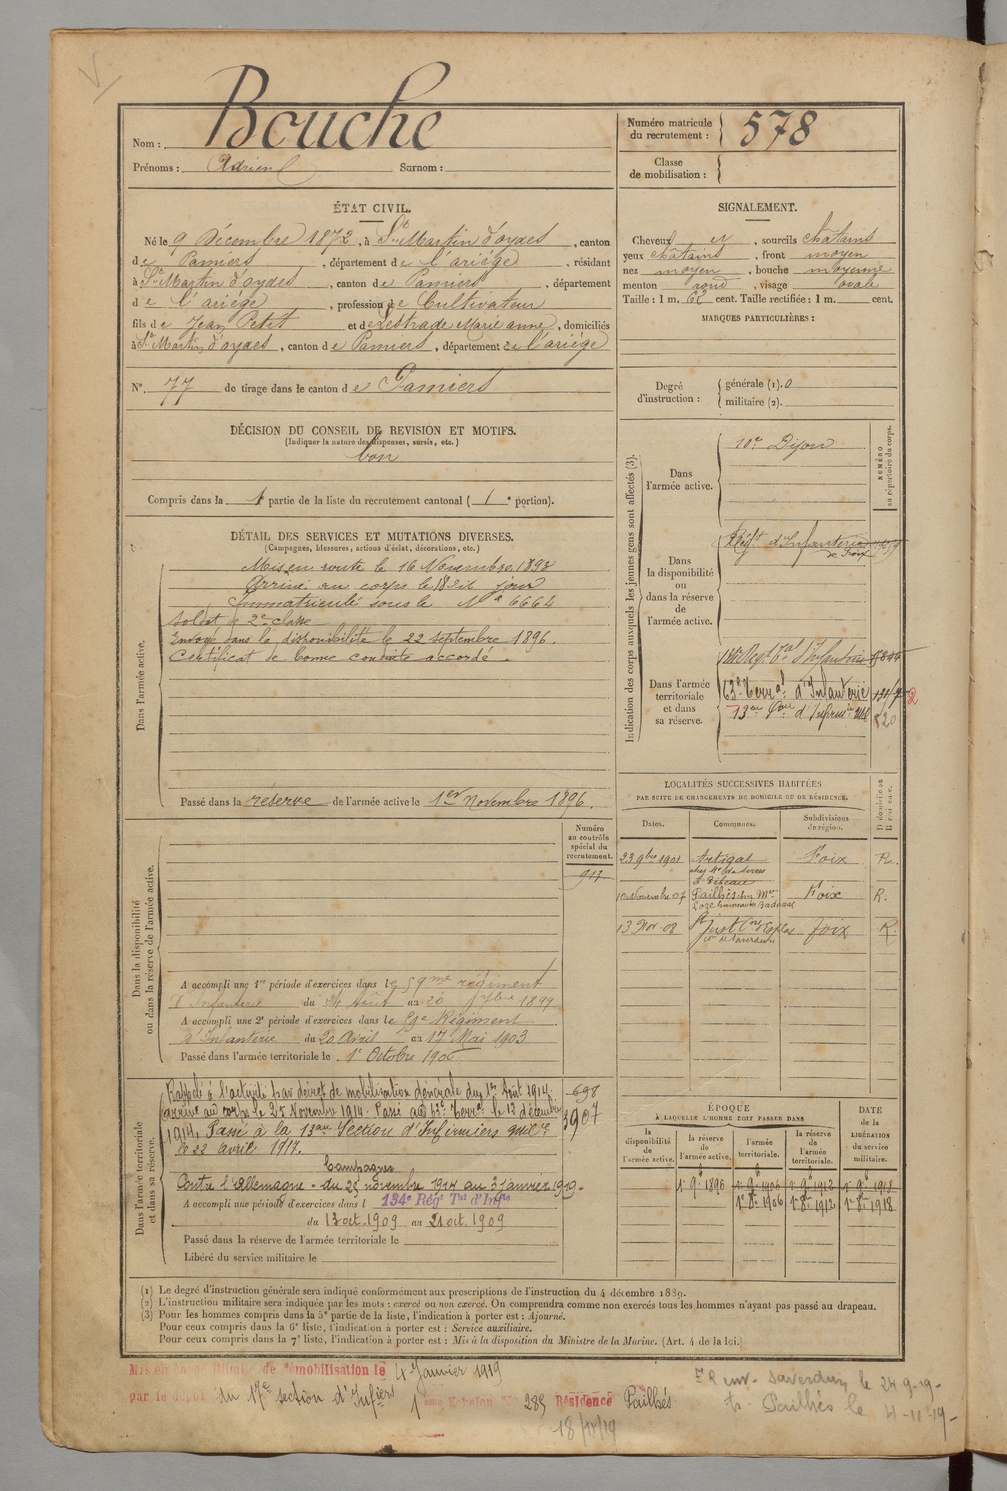 Bouche
Nom :
Prénoms : Adrien Surnom :
Numéro matricule du recrutement : 578
Classe de mobilisation :
ÉTAT CIVIL.
Né le 9 Décembre 1872, à St Martin d'oydes, canton
de Pamiers, département de l'ariége, résidant
à St Martin d'oydes, canton de Pamiers, département
de l'ariége, profession de Cultivateur
fils de Jean Petit et de Lestrade Marie anne, domiciliés
à St Martin d'oydes, canton de Pamiers, département de l'ariége
N° 77 de tirage dans le canton de Pamiers
DÉCISION DU CONSEIL DE REVISION ET MOTIFS.
(Indiquer la nature des dispenses, sursis, etc.)
bon
Compris dans la 1e partie de la liste du recrutement cantonal ( 1e portion).
DÉTAIL DES SERVICES ET MUTATIONS DIVERSES.
(Campagnes, blessures, actions d'éclat, décorations, etc.)
Dans l'armée active.
Mis en route le 16 Novembre 1893
Arrivé au corps le 18 dit jour
Immatriculé sous le N° 6664
Soldat de 2e classe
Envoyé dans la disponibilité le 22 septembre 1896.
Certificat de bonne conduite accordé.
Passé dans la réserve de l'armée active le 1er Novembre 1896.
Dans la disponibilité ou dans la réserve de l'armée active.
Numéro au contrôle spécial du recrutement.
A accompli une 1re période d'exercices dans le 59me régiment
d'Infanterie du 24 Août au 20 7bre 1899
A accompli une 2e période d'exercices dans le 59e Régiment
d'Infanterie du 20 Avril au 17 Mai 1903
Passé dans l'armée territoriale le 1er Octobre 1906
Dans l'armée territoriale et dans sa réserve.
Rappelé à l'activité par décret de mobilisation générale du 1er Août 1914. 698
Arrivé au corps le 25 Novembre 1914. Passé au 63e Terral le 12 décembre 3907
1914. Passé à la 13me Section d'Infirmiers Milres
le 22 avril 1917.
Campagnes
Contre l'Allemagne - du 25 novembre 1914 au 3 janvier 1919.
A accompli une période d'exercices dans le 134e Régt Tal d'Infie
du 13 oct. 1909 au 21 oct. 1909
Passé dans la réserve de l'armée territoriale le
Libéré du service militaire le
SIGNALEMENT.
Cheveux et, sourcils châtains
yeux châtains, front moyen
nez moyen, bouche moyenne
menton rond, visage ovale
Taille : 1 m. 62 cent. Taille rectifiée : 1 m. cent.
MARQUES PARTICULIÈRES :
Degré d'instruction : générale (1). 0
militaire (2).
Indication des corps auxquels les jeunes gens sont affectés (3).
NUMÉRO au répertoire du corps.
Dans l'armée active.
10e Dijon
Dans la disponibilité ou dans la réserve de l'armée active.
Régt d'Infanterie
de Foix
Dans l'armée territoriale et dans sa réserve.
63e Terral d'Infanterie
13me Son d'Infirmrs Mil 820
LOCALITÉS SUCCESSIVES HABITÉES
PAR SUITE DE CHANGEMENTS DE DOMICILE OU DE RÉSIDENCE.
Dates. Communes. Subdivisions de région. D domicile ou R résidence.
23 9bre 1901 Artigat Foix R.
10 Novembre 07 Pailhès Foix R.
13 Nov 08 St Just Foix R.
ÉPOQUE
À LAQUELLE L'HOMME DOIT PASSER DANS
la disponibilité de l'armée active. la réserve de l'armée active. l'armée territoriale. la réserve de l'armée territoriale.
DATE de la LIBÉRATION du service militaire.
1r 9e 1896 1r 9e 1906 1r 9e 1912 1r 9e 1918
1r 8e 1906 1r 8e 1912 1r 8e 1918
(1) Le degré d'instruction générale sera indiqué conformément aux prescriptions de l'instruction du 4 décembre 1889.
(2) L'instruction militaire sera indiquée par les mots : exercé ou non exercé. On comprendra comme non exercés tous les hommes n'ayant pas passé au drapeau.
(3) Pour les hommes compris dans la 5e partie de la liste, l'indication à porter est : Ajourné.
Pour ceux compris dans la 6e liste, l'indication à porter est : Service auxiliaire.
Pour ceux compris dans la 7e liste, l'indication à porter est : Mis à la disposition du Ministre de la Marine. (Art. 4 de la loi.)
Mis en congé illimité de démobilisation le 4 Janvier 1919
par le dépôt du 17e section d'Infiers 1er Echelon No 285 Résidence Pailhés
18/11/19
Saverdun le 24-9-19-
Pailhés le 4-11-19-